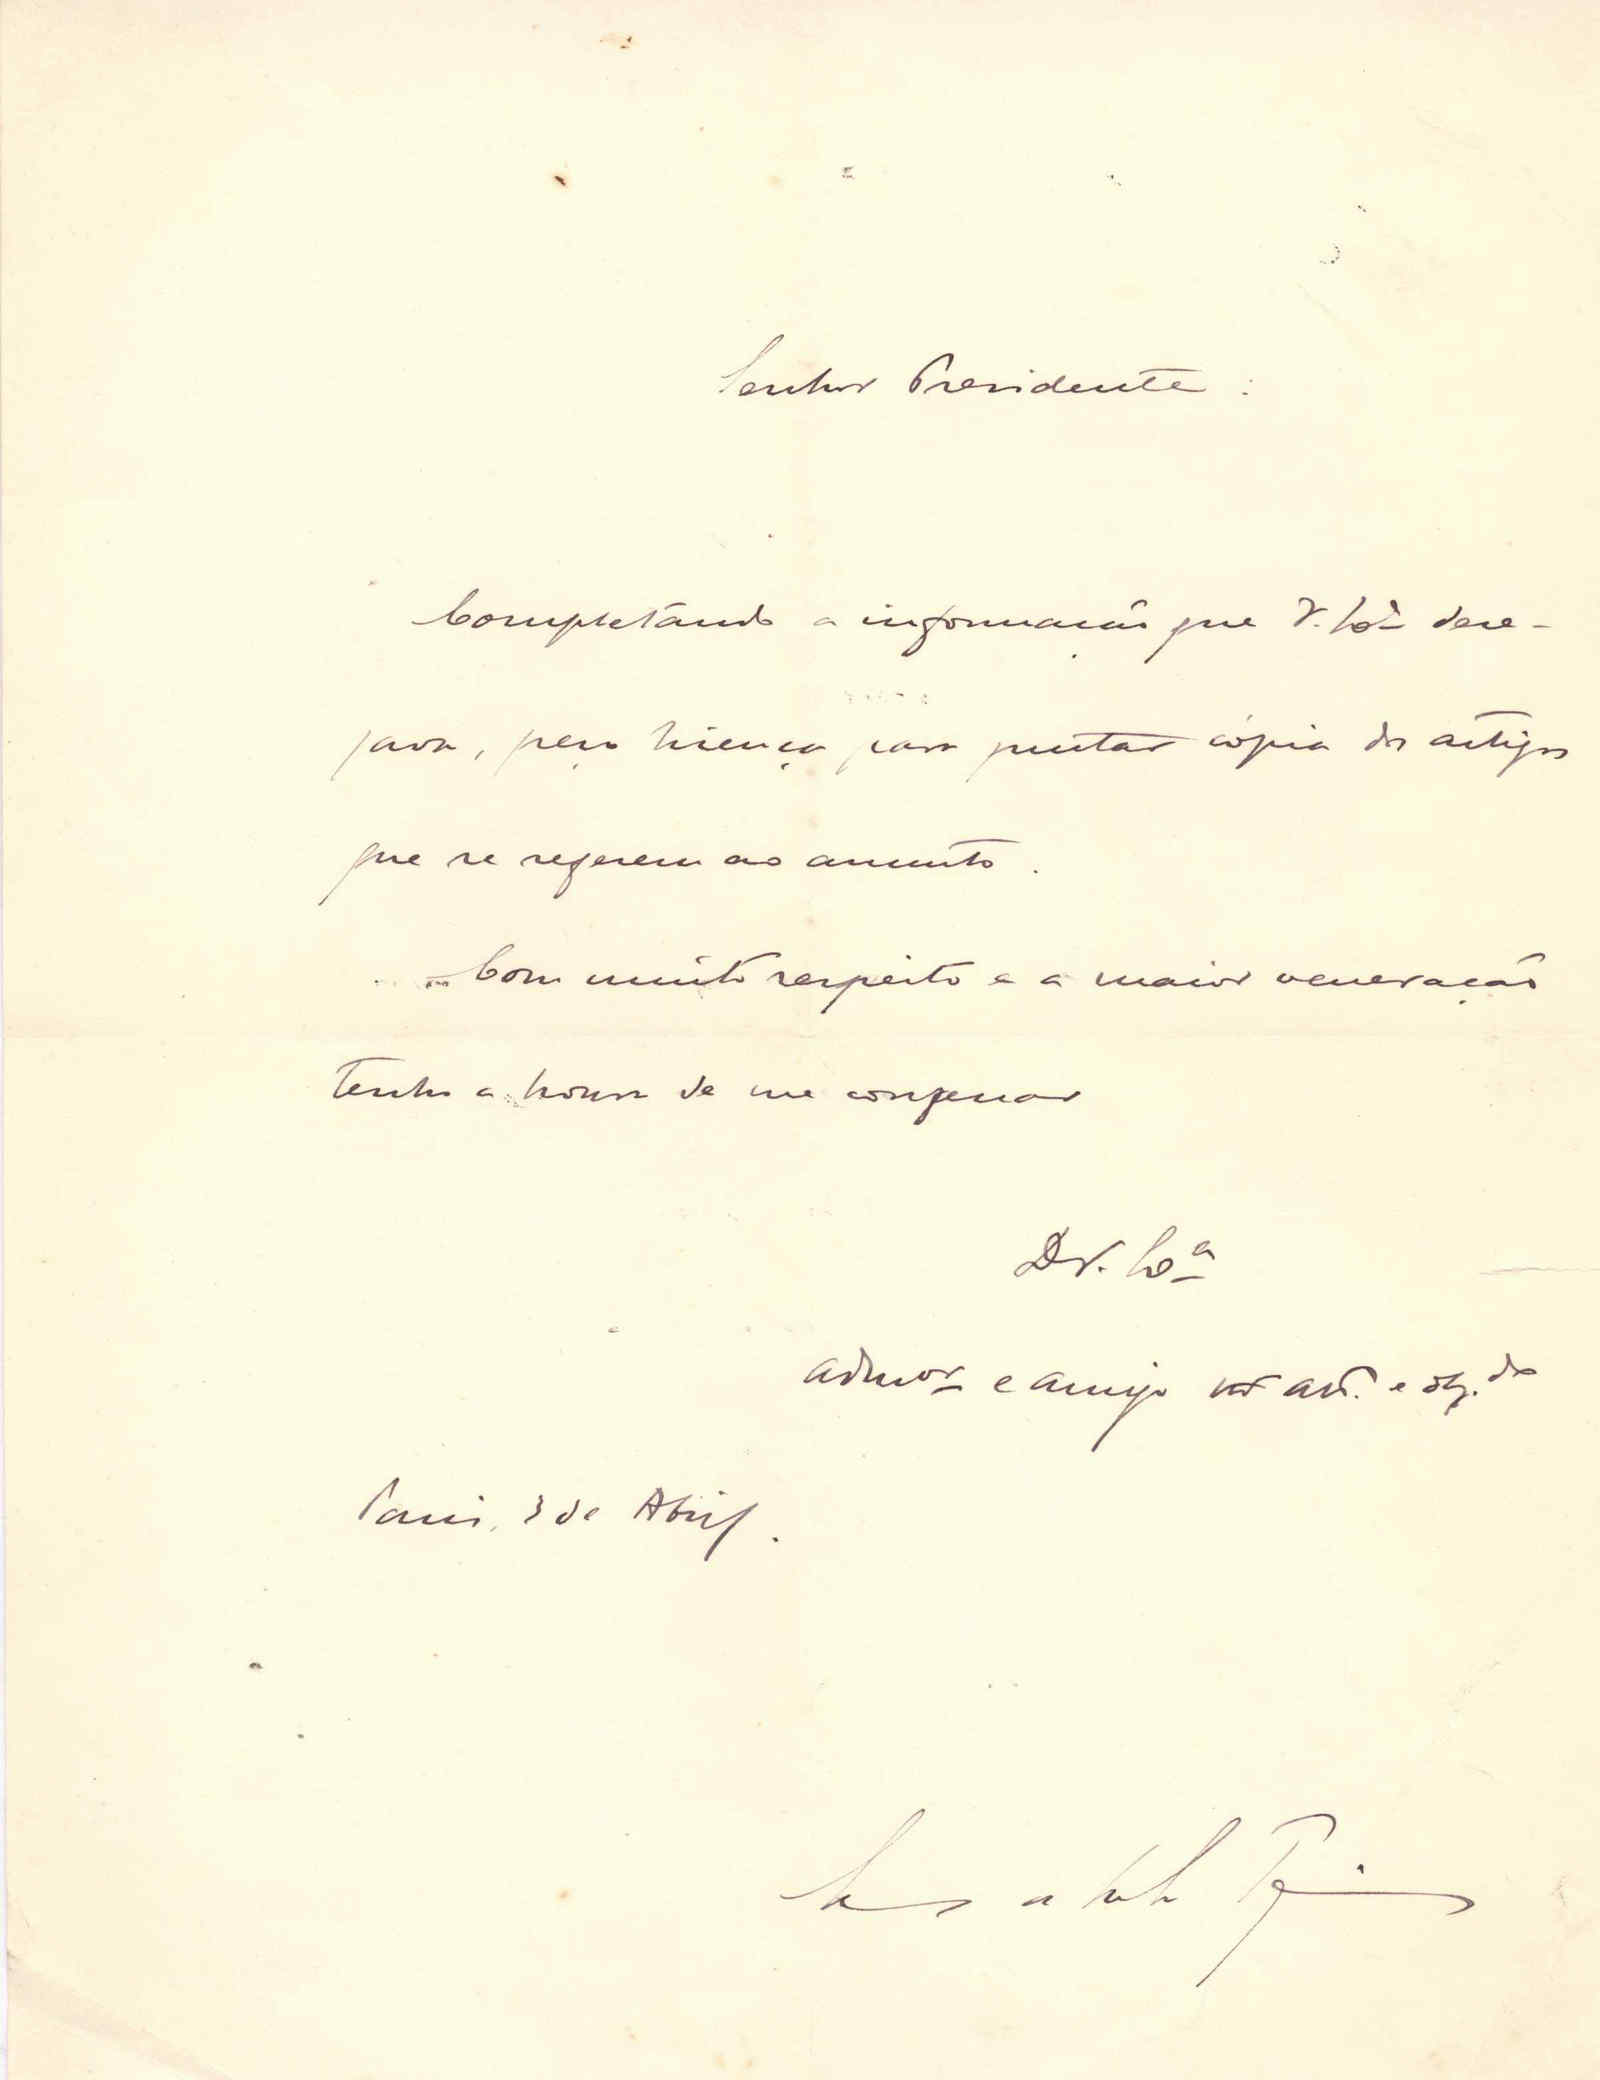 Senhor Presidente :
Completando a informação que V. Exª dese-
java, peço licença para juntar cópia dos artigos
que se referem ao assunto.
Com muito respeito e a maior veneração
tenho a honra de me confessar
De V. Exª
admor e amigo mto att. e obg.do
Paris, 3 de Abril.